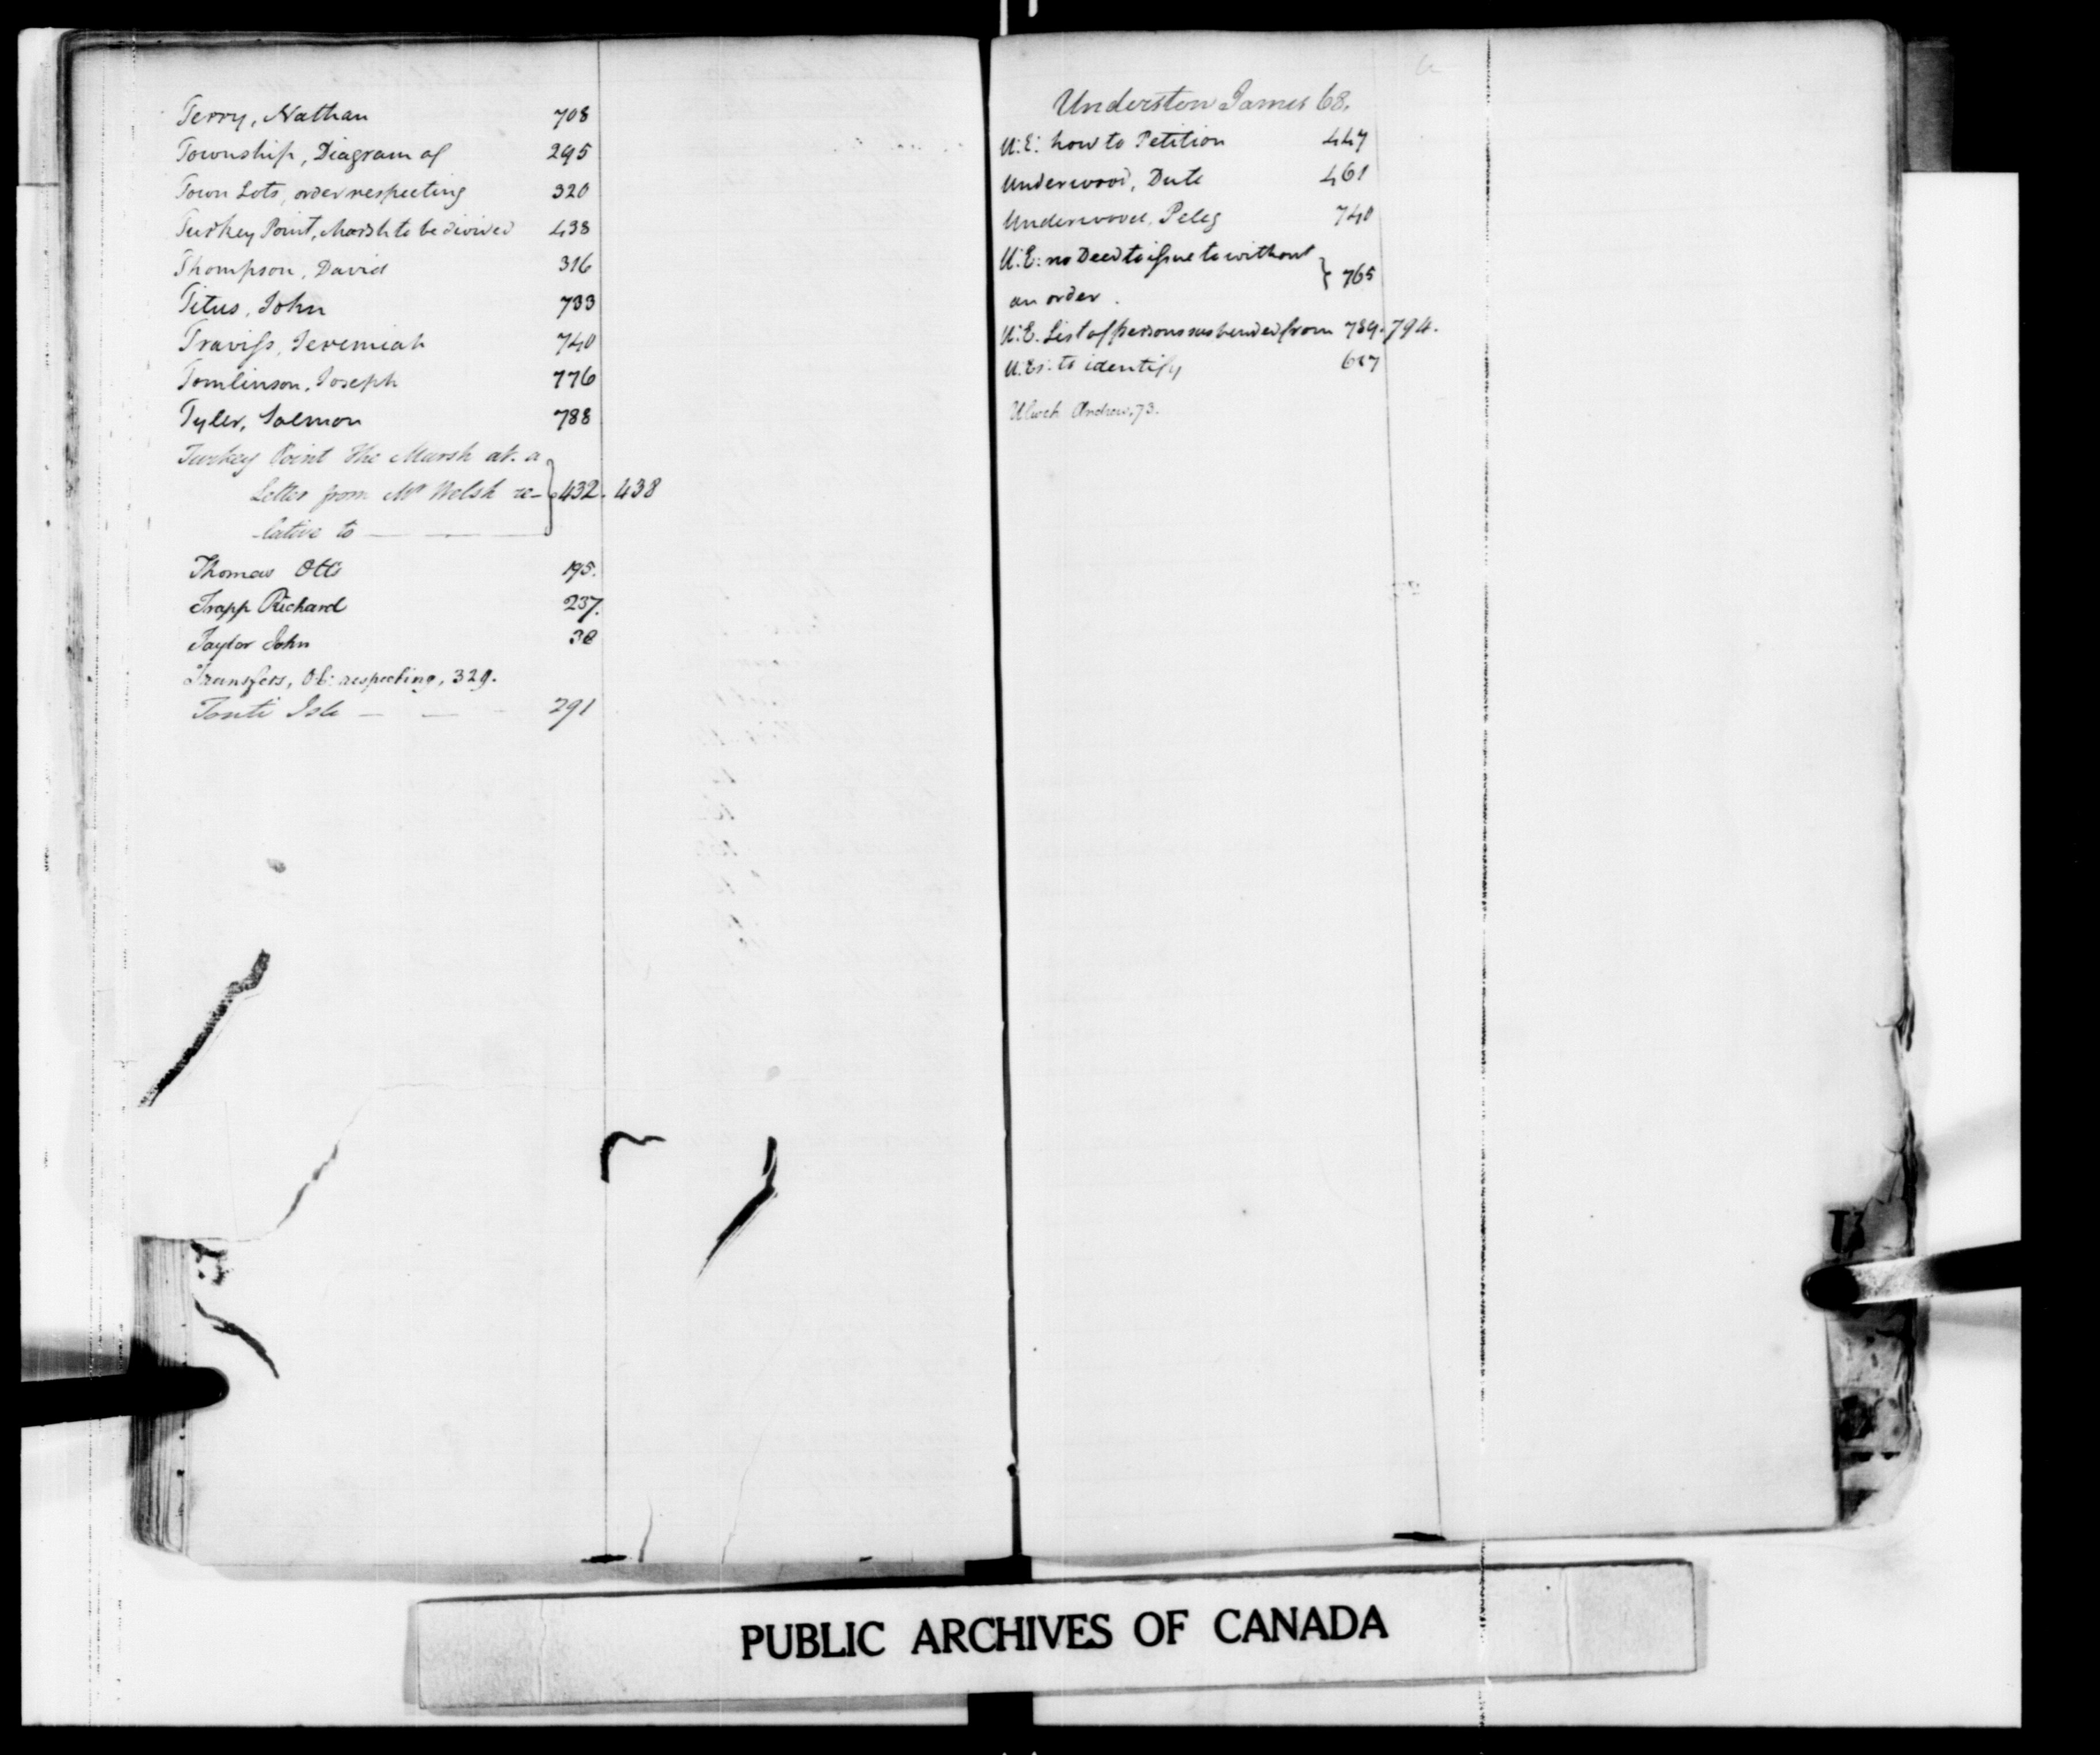 Terry, Nathan 708
Township, Diagram of 295
Town Lots, order respecting 320
Turkey Point, Marsh to be divided 438
Thompson, David 316
Titus, John 733
Traviss, Jeremiah 740
Tomlinson, Joseph 776
Tyler, Salmon 788
Turkey Point the Marsh at. a
Letter from Mr Welsh re- 432. 438
-lative to
Thomas Otto 195.
Trapp Richard 237.
Taylor John 38
Transfers, Ob: respecting, 329.
Tonti Isle 291
Underston James 68.
U:E: how to Petition 447
Underwood, Dute 461
Underwood, Peleg 740
U:E: no Deed to issue to without
an order. 765
U:E. List of persons suspended from 789. 794.
U:Es: to identify 627
Andrew, 73.
U
PUBLIC ARCHIVES OF CANADA